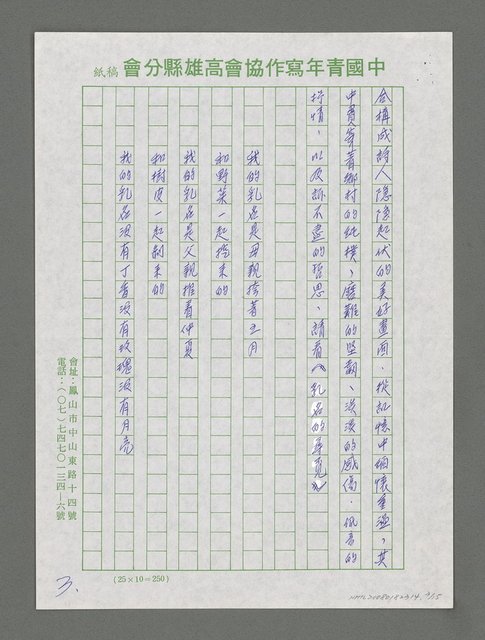 中國青年寫作協會高雄縣分會 稿紙
合構成詩人隱隱起伏的美好畫面，從記憶中緬懷童溫，其
中貫穿着鄉村的純樸、磨難的堅韌、淡淡的感傷，低音的
抒情，以及訴不盡的哲思，請看《乳名的尋覓》
我的乳名是母親挎著五月
和野菜一起挖來的
我的乳名是父親推着仲夏
和樹皮一起剝來的
我的乳名沒有丁香沒有玫瑰沒有月亮
會址：鳳山市中山東路十四號
電話：（〇七）七四七〇一三四—六號
(25×10＝250)
3.